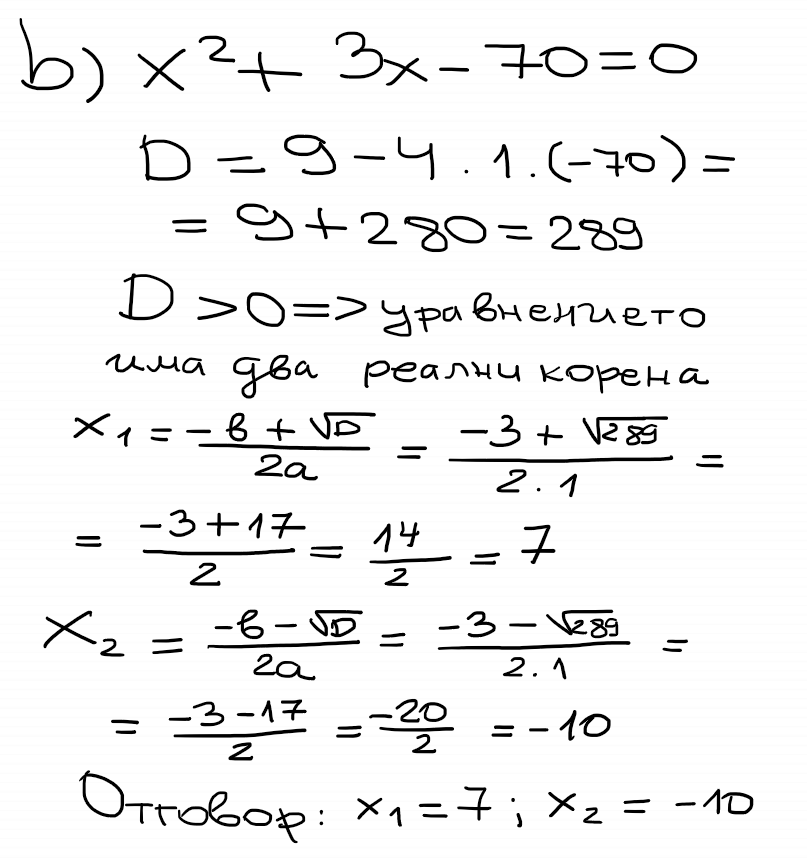 b) x² + 3x - 70 = 0
D = 9 - 4 . 1 . (-70) =
= 9 + 280 = 289
D > 0 => уравнението
има два реални корена
x₁ = (-в + √D)/(2a) = (-3 + √289)/(2 . 1) =
= (-3 + 17)/2 = 14/2 = 7
x₂ = (-в - √D)/(2a) = (-3 - √289)/(2 . 1) =
= (-3 - 17)/2 = (-20)/2 = -10
Отговор: x₁ = 7 ; x₂ = -10